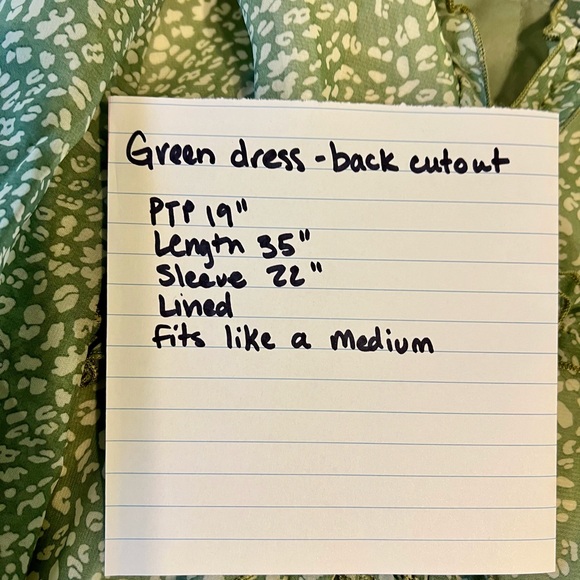 Green dress - back cutout
PTP 19"
Length 35"
Sleeve 22"
Lined
Fits like a Medium